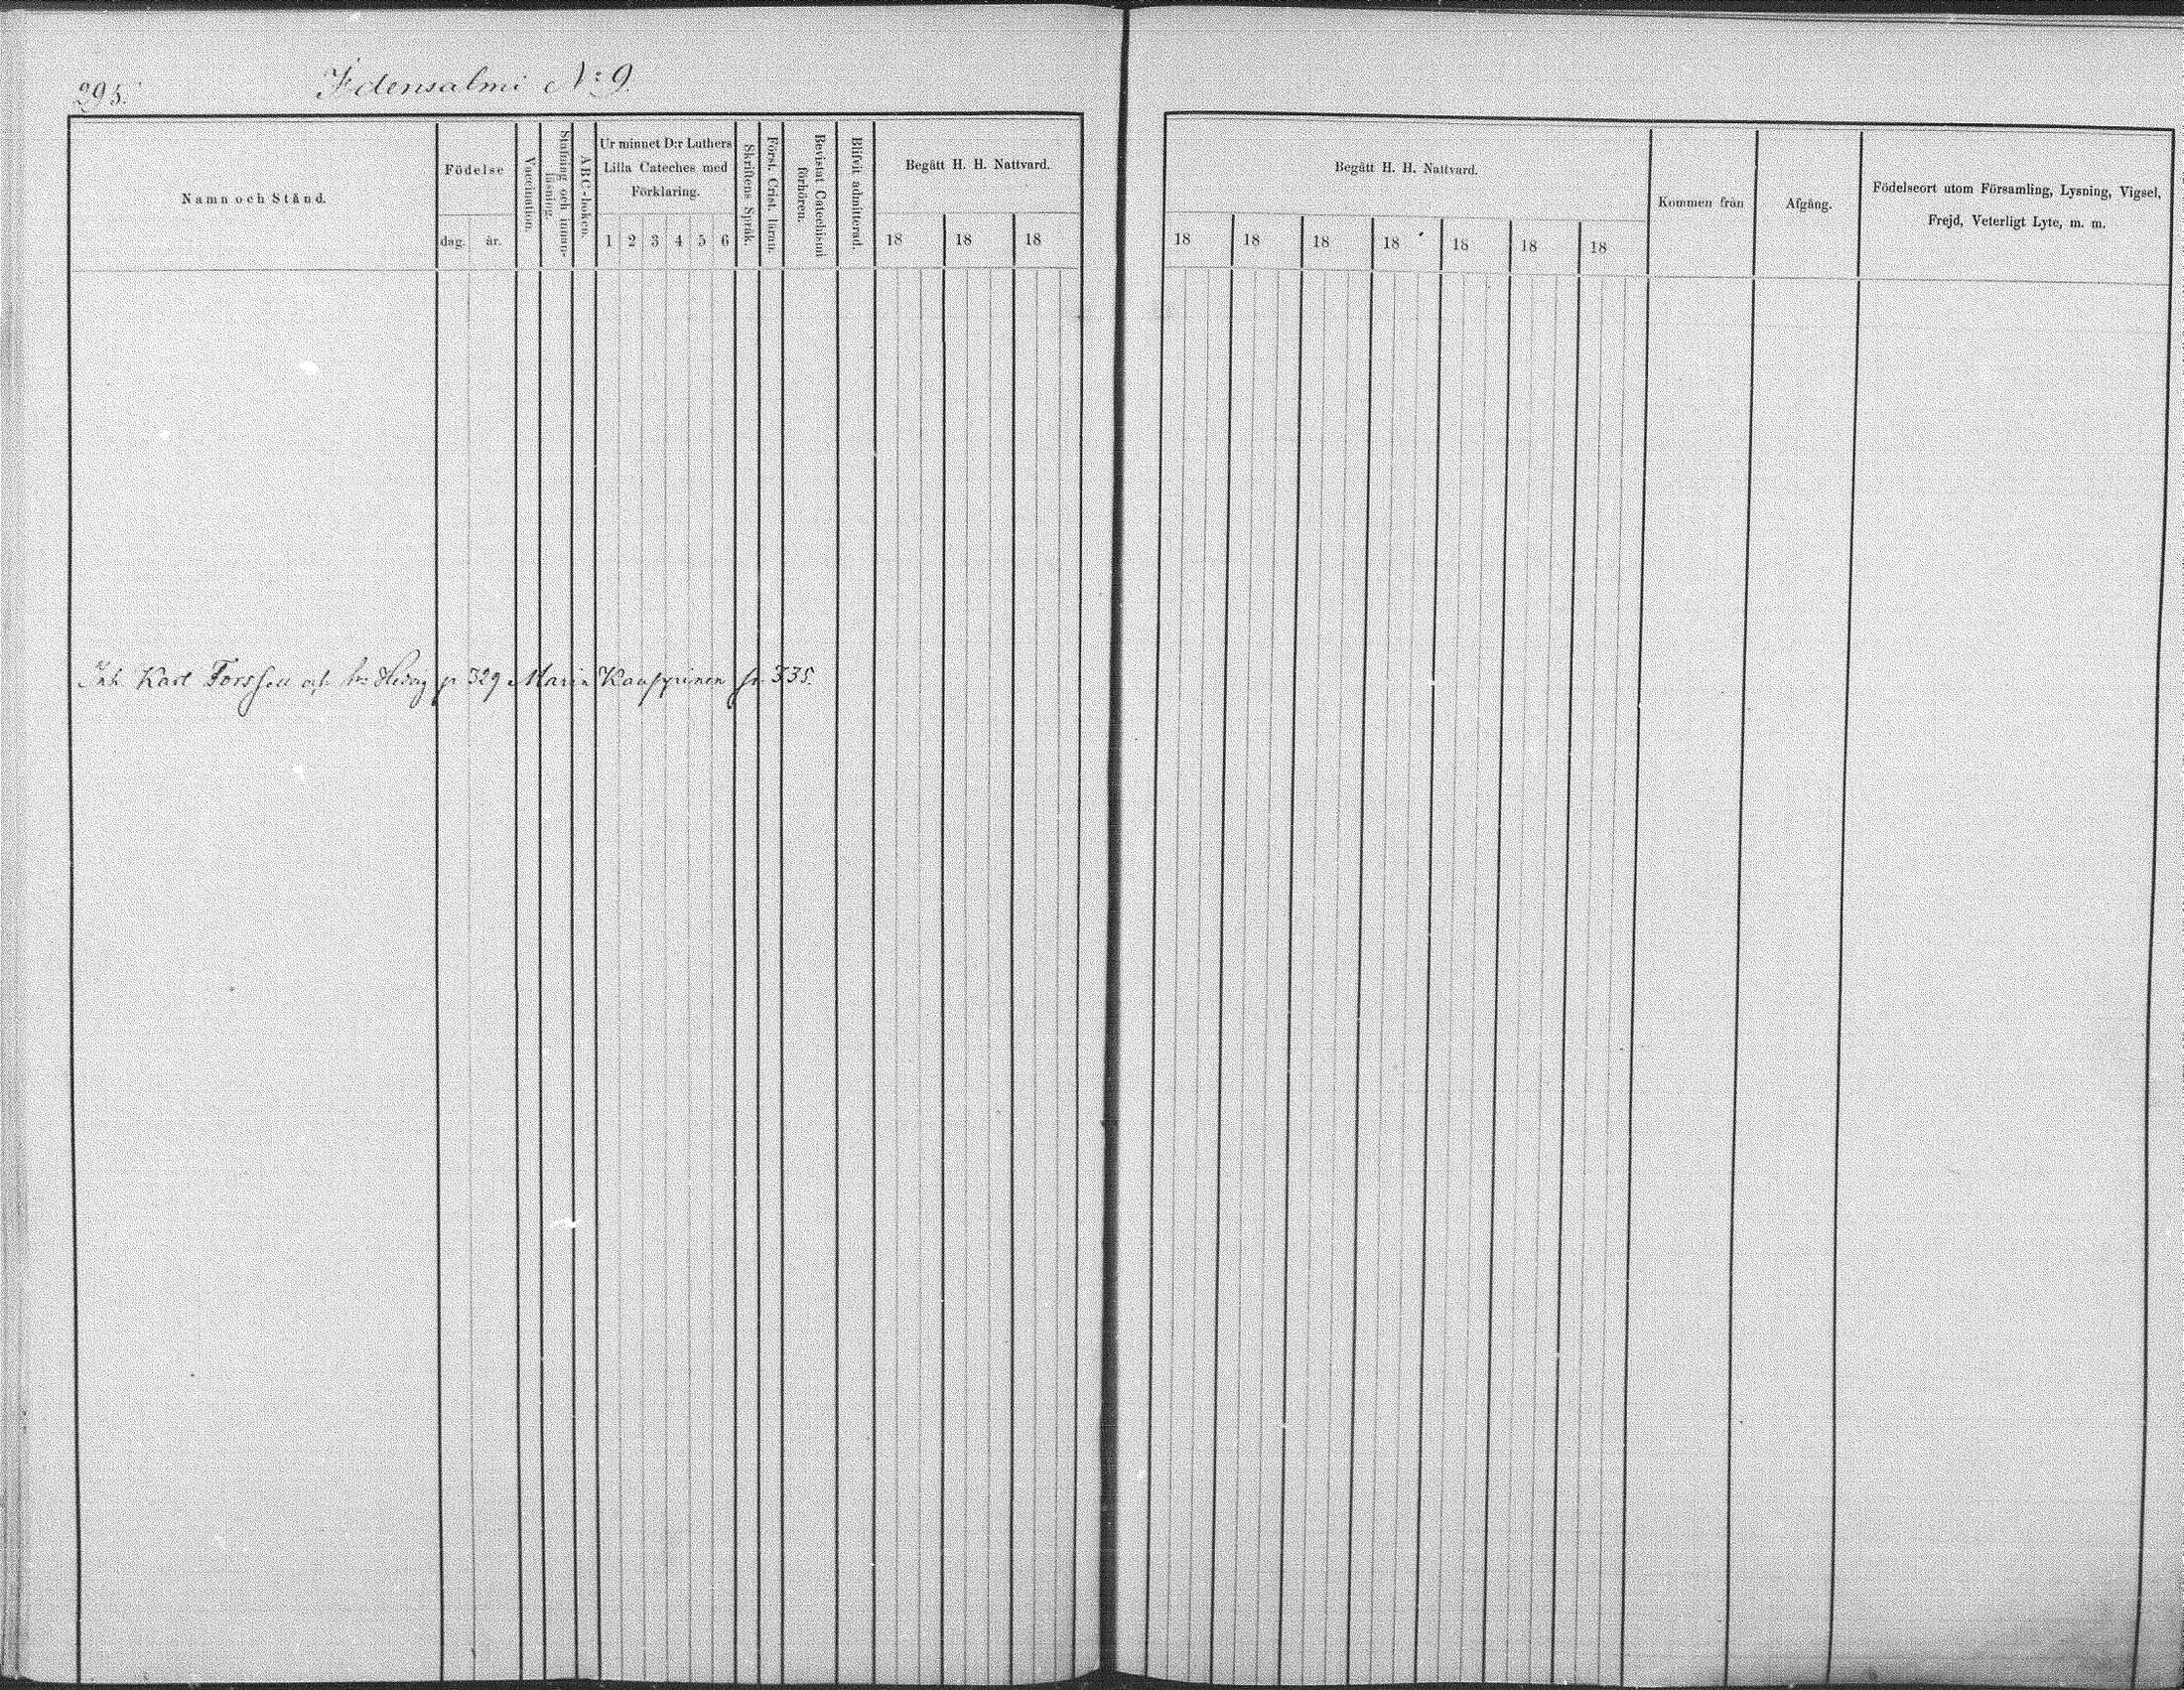 295.
Idensalmi N:o 9.
Namn och Stånd.
Födelse
dag. år.
Vaccination.
Stafning och innan-
läsning.
ABC-boken.
Ur minnet D:r Luthers
Lilla Cateches med
Förklaring.
1 2 3 4 5 6
Skriftens Språk.
Först. Crist. läran.
Bevistat Catechismi
förhören.
Blifvit admitterad.
Begått H. H. Nattvard.
18 18 18
Begått H. H. Nattvard.
18 18 18 18 18 18 18
Kommen från
Afgång.
Födelseort utom Församling, Lysning, Vigsel,
Frejd, Veterligt Lyte, m. m.
Inh. Karl Forssell och Hedvig p 329 Maria Kauppinen p. 335.